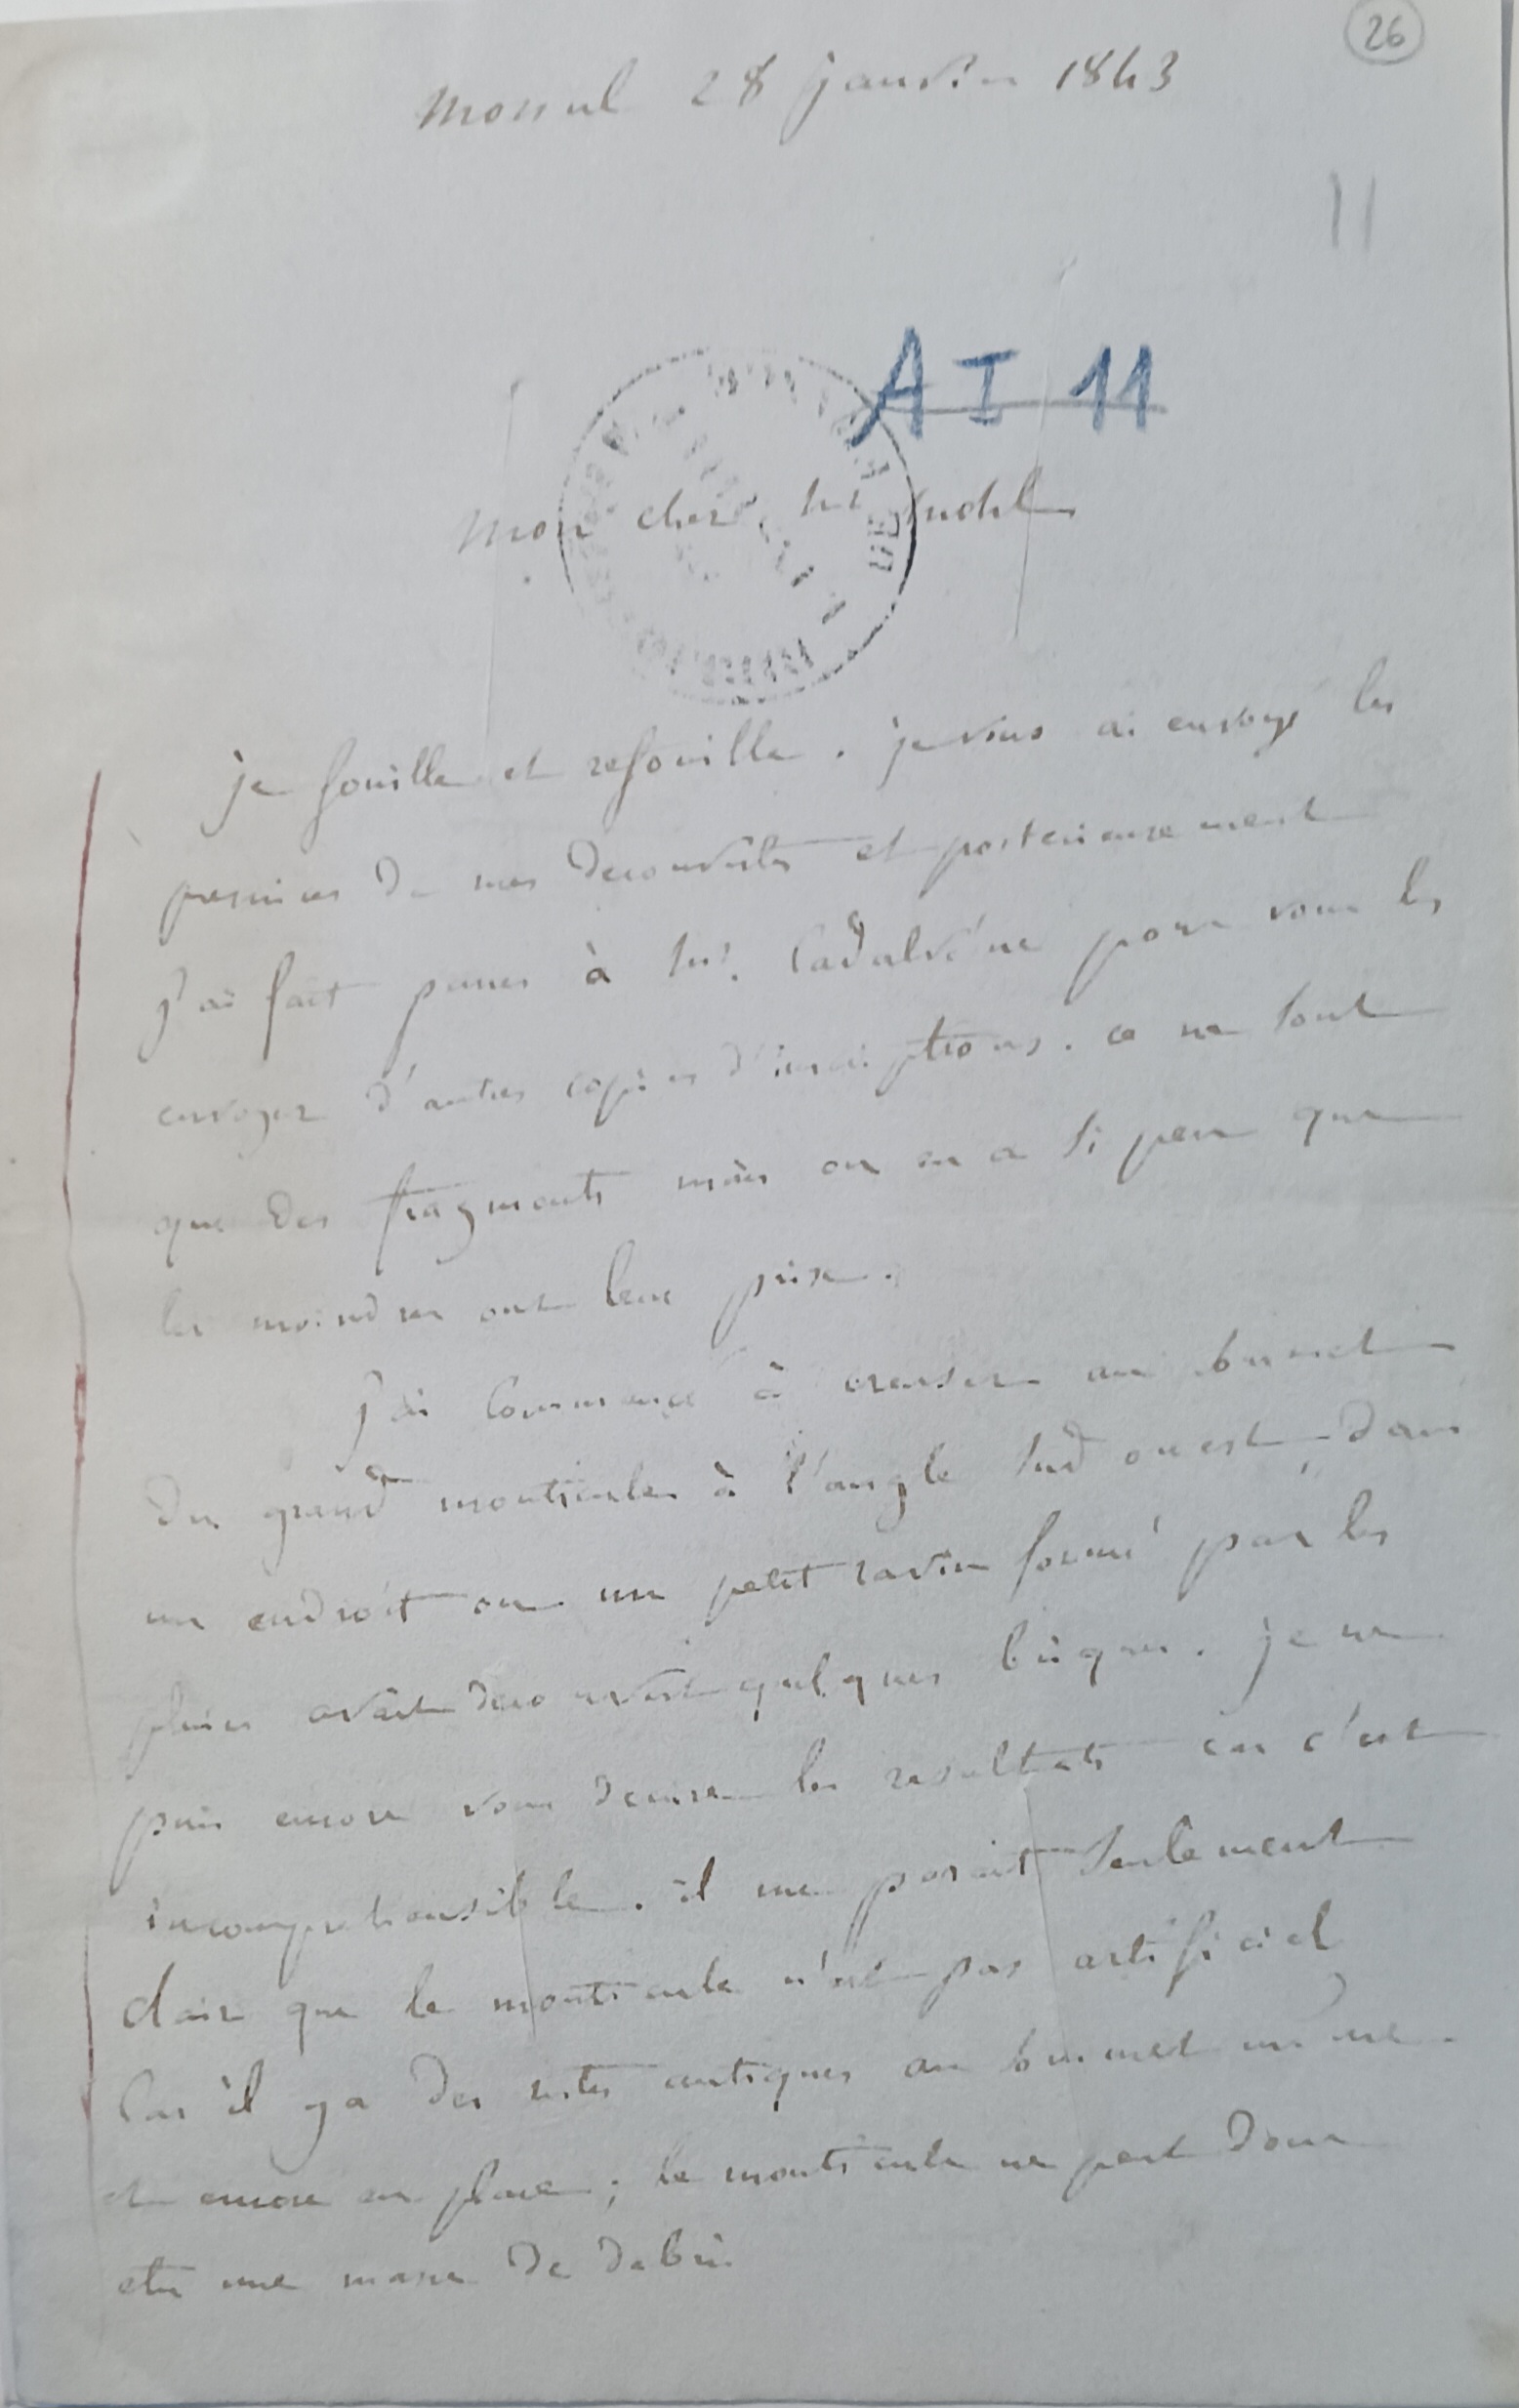 26
Mossul 28 janvier 1843
11
A I 11
Mon cher Mr Mohl
je fouille et refouille. je vous ai envoyé les
premices de mes decouvertes et posterieurement
j'ai fait passer à Mr. Cadalvène pour vous les
envoyer d'autres copies d'inscriptions. ce ne sont
que des fragments mais on en a si peu que
les moindres ont leur prix.
J'ai commencé à creuser au sommet
du grand monticule à l'angle sud ouest dans
un endroit ou un petit ravin formé par les
pluies avait decouvert quelques briques. je ne
puis encore vous decrire les resultats car c'est
incomprehensible. il me parait seulement
clair que le monticule n'est pas artificiel
Car il y a des restes antiques au sommet même
et encore en place; le monticule ne peut donc
etre une masse de debris